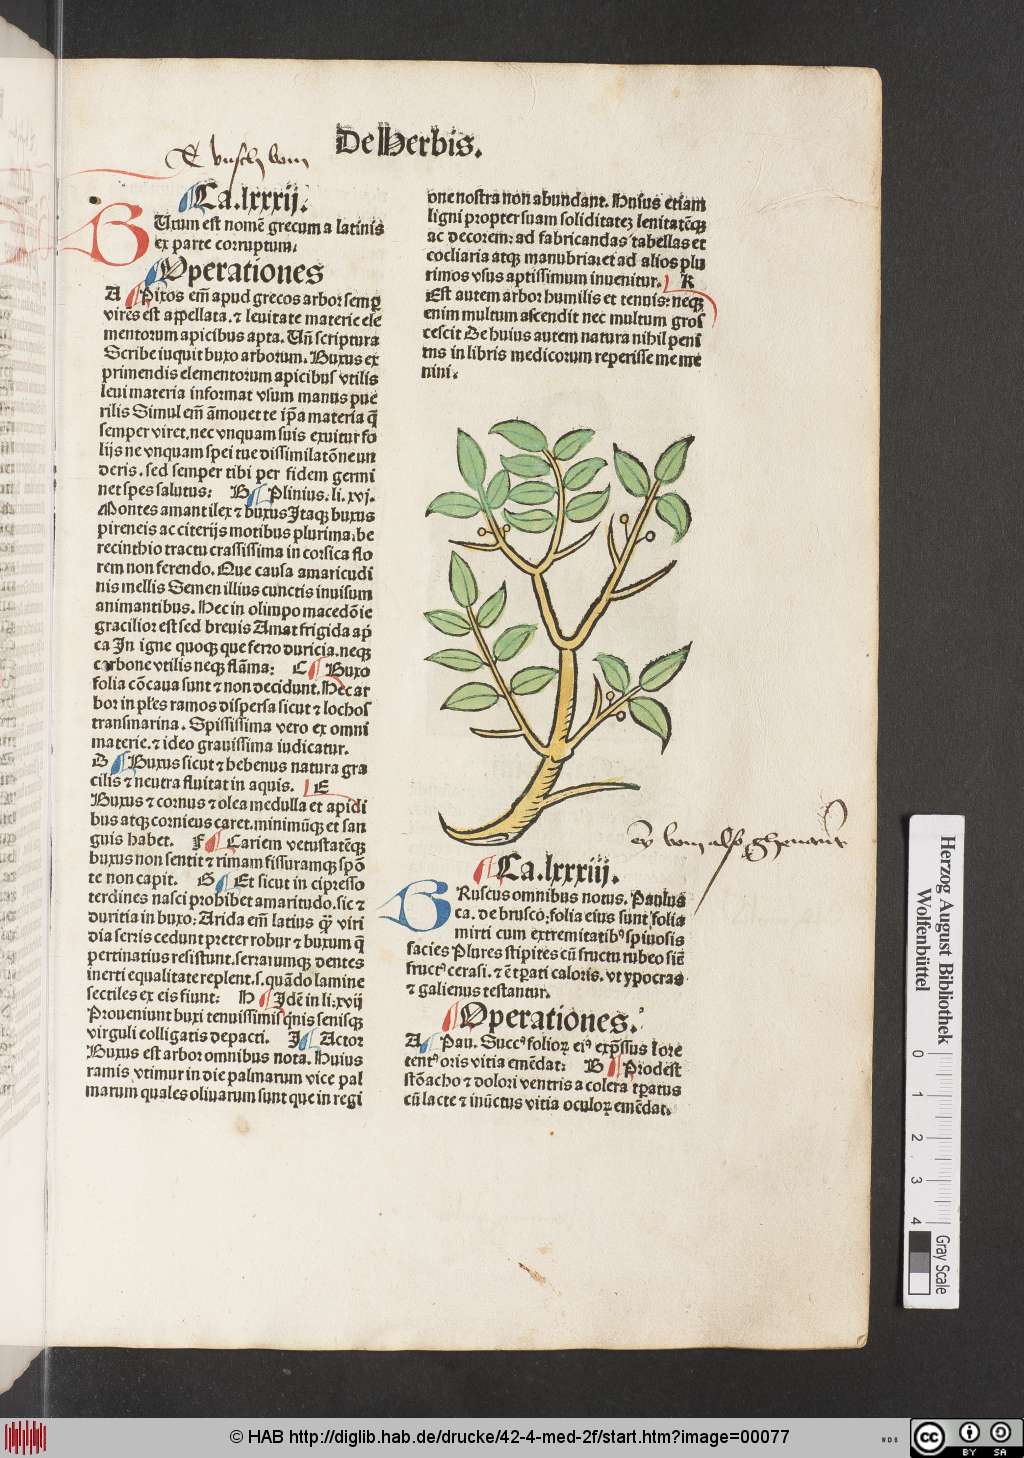 De Herbis.
Ca.lxxxij.
BUxum est nomē grecum a latinis
ex parte corruptum.
Operationes
A Pixos em̄ apud grecos arbor semp
virēs est appellata.⁊ leuitate materie ele
mentorum apicibus apta. Un̄ scriptura
Scribe inquit buxo arborum. Buxus ex
primendis elementorum apicibus vtilis
leui materia informat vsum manus pue
rilis Simul em̄ āmouet te ip̄a materia q̄
semper viret.nec vnquam suis exuitur fo
lijs ne vnquam spei tue dissimilatōne un
deris.sed semper tibi per fidem germi
net spes salutus: B Plinius.li.xvj.
Montes amant ilex ⁊ buxus Itaqꝫ buxus
pireneis ac citerijs motibus plurima:be
recinthio tractu crassissima in corsica flo
rem non ferendo. Que causa amaricudi
nis mellis Semen illius cunctis inuisum
animantibus. Hec in olimpo macedōie
gracilior est sed breuis Amat frigida ap
ca In igne quoqꝫ que ferro duricia.neqꝫ
carbone vtilis neqꝫ flāma: C Buxo
folia cōcaua sunt ⁊ non decidunt. Hec ar
bor in ples ramos dispersa sicut ⁊ lochos
transmarina. Spississima vero ex omni
materie.⁊ ideo grauissima iudicatur.
D Buxus sicut ⁊ hebenus natura gra
cilis ⁊ neutra fluitat in aquis. E
Buxus ⁊ cornus ⁊ olea medulla et apidi
bus atqꝫ cornieus caret.minimūqꝫ et san
guis habet. F Cariem vetustatēqꝫ
buxus non sentit ⁊ rimam fissuramqꝫ spō
te non capit. G Et sicut in cipresso
terdines nasci prohibet amaritudo.sic ⁊
duritia in buxo: Arida em̄ latius qꝫ viri
dia serris cedunt preter robur ⁊ buxum q̄
pertinatius resistunt.serrarumqꝫ dentes
inerti equalitate replent.s.quādo lamine
sectiles ex eis fiunt: H Idē in li:xvij
Proueniunt buxi tenuissimis qnis senisqꝫ
virguli colligatis depacti. I Actor
Buxus est arbor omnibus nota. Huius
ramis vtimur in die palmarum vice pal
marum quales oliuarum sunt que in regi
one nostra non abundant. Huius etiam
ligni propter suam soliditatez lenitatēqꝫ
ac decorem: ad fabricandas tabellas et
cocliaria atqꝫ manubria:et ad alios plu
rimos vsus aptissimum inuenitur. K
Est autem arbor humilis et tenuis: neqꝫ
enim multum ascendit nec multum gros
cescit De huius autem natura nihil peni
tus in libris medicorum reperisse me me
nini.
Ca.lxxxiij.
BRuscus omnibus notus. Paulus
ca. de brusco: folia eius sunt folia
mirti cum extremitatibꝰ spinosis
facies Plures stipites cū fructu rubeo siē
fructꝰ cerasi.⁊ ē tꝑati caloris. vt ypocras
⁊ galienus testantur.
Operationes.
A Pau. Succꝰ folioꝝ eiꝰ exp̄ssus tore
tentꝰ oris vitia emēdat: B Prodest
stōacho ⁊ dolori ventris a colera tꝑatus
cū lacte ⁊ inūctus vitia oculoꝝ emēdat.
Herzog August Bibliothek
Wolfenbüttel
0 1 2 3 4
Gray Scale
© HAB http://diglib.hab.de/drucke/42-4-med-2f/start.htm?image=00077
WDB
cc BY SA